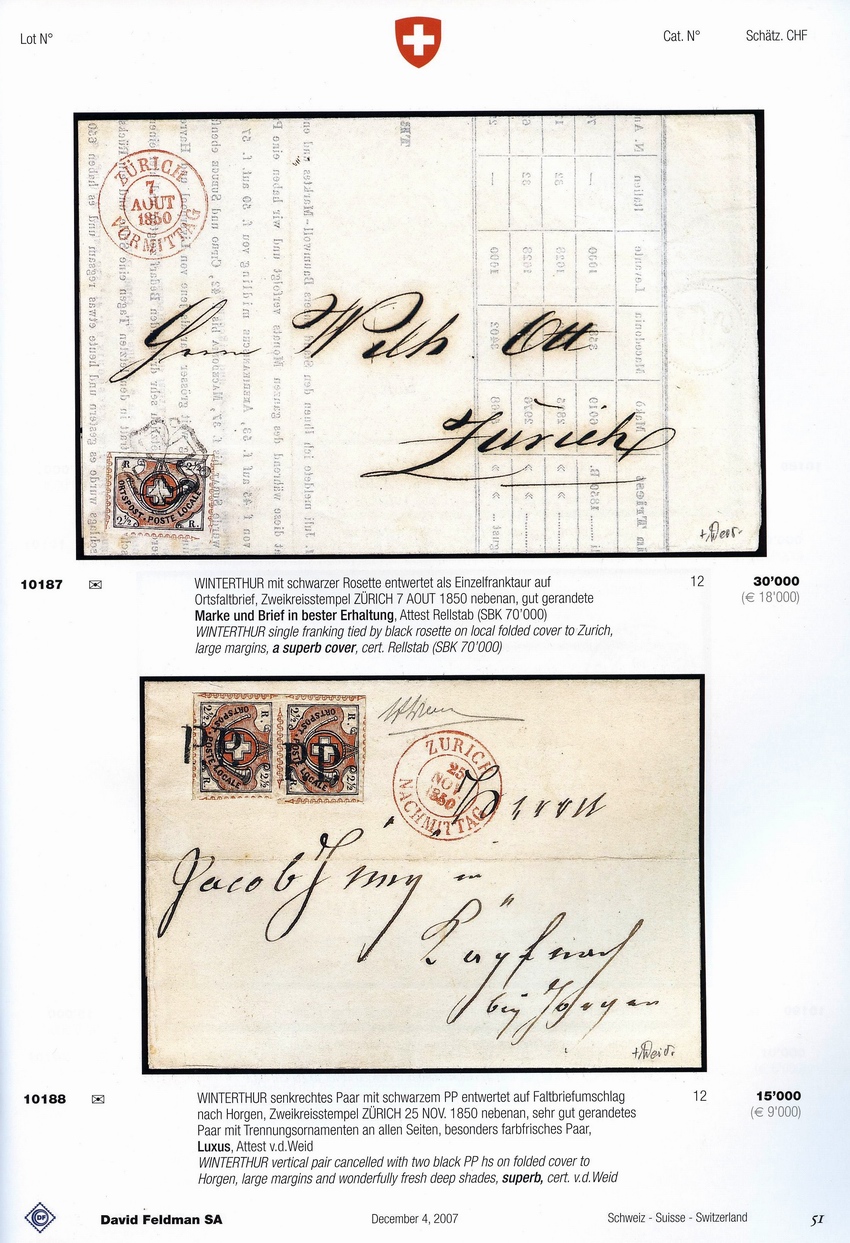 Lot N° Cat. N° Schätz. CHF
ZÜRICH
7
AOUT
1850
VORMITTAG
Herrn Welh Ott
Zürich
R 2½
ORTSPOST · POSTE LOCALE
2½ R.
10187 WINTERTHUR mit schwarzer Rosette entwertet als Einzelfranktaur auf 12 30'000
Ortsfaltbrief, Zweikreisstempel ZÜRICH 7 AOUT 1850 nebenan, gut gerandete (€ 18'000)
Marke und Brief in bester Erhaltung, Attest Rellstab (SBK 70'000)
WINTERTHUR single franking tied by black rosette on local folded cover to Zurich,
large margins, a superb cover, cert. Rellstab (SBK 70'000)
2½ R. 2½ R.
ORTSPOST POSTE LOCALE ORTSPOST POSTE LOCALE
PP PP
2½ 2½
ZURICH
25
NOV
1850
NACHMITTAG
Herrn
Jacob
bey Horgen
10188 WINTERTHUR senkrechtes Paar mit schwarzem PP entwertet auf Faltbriefumschlag 12 15'000
nach Horgen, Zweikreisstempel ZÜRICH 25 NOV. 1850 nebenan, sehr gut gerandetes (€ 9'000)
Paar mit Trennungsornamenten an allen Seiten, besonders farbfrisches Paar,
Luxus, Attest v.d.Weid
WINTERTHUR vertical pair cancelled with two black PP hs on folded cover to
Horgen, large margins and wonderfully fresh deep shades, superb, cert. v.d.Weid
DF David Feldman SA December 4, 2007 Schweiz - Suisse - Switzerland 51